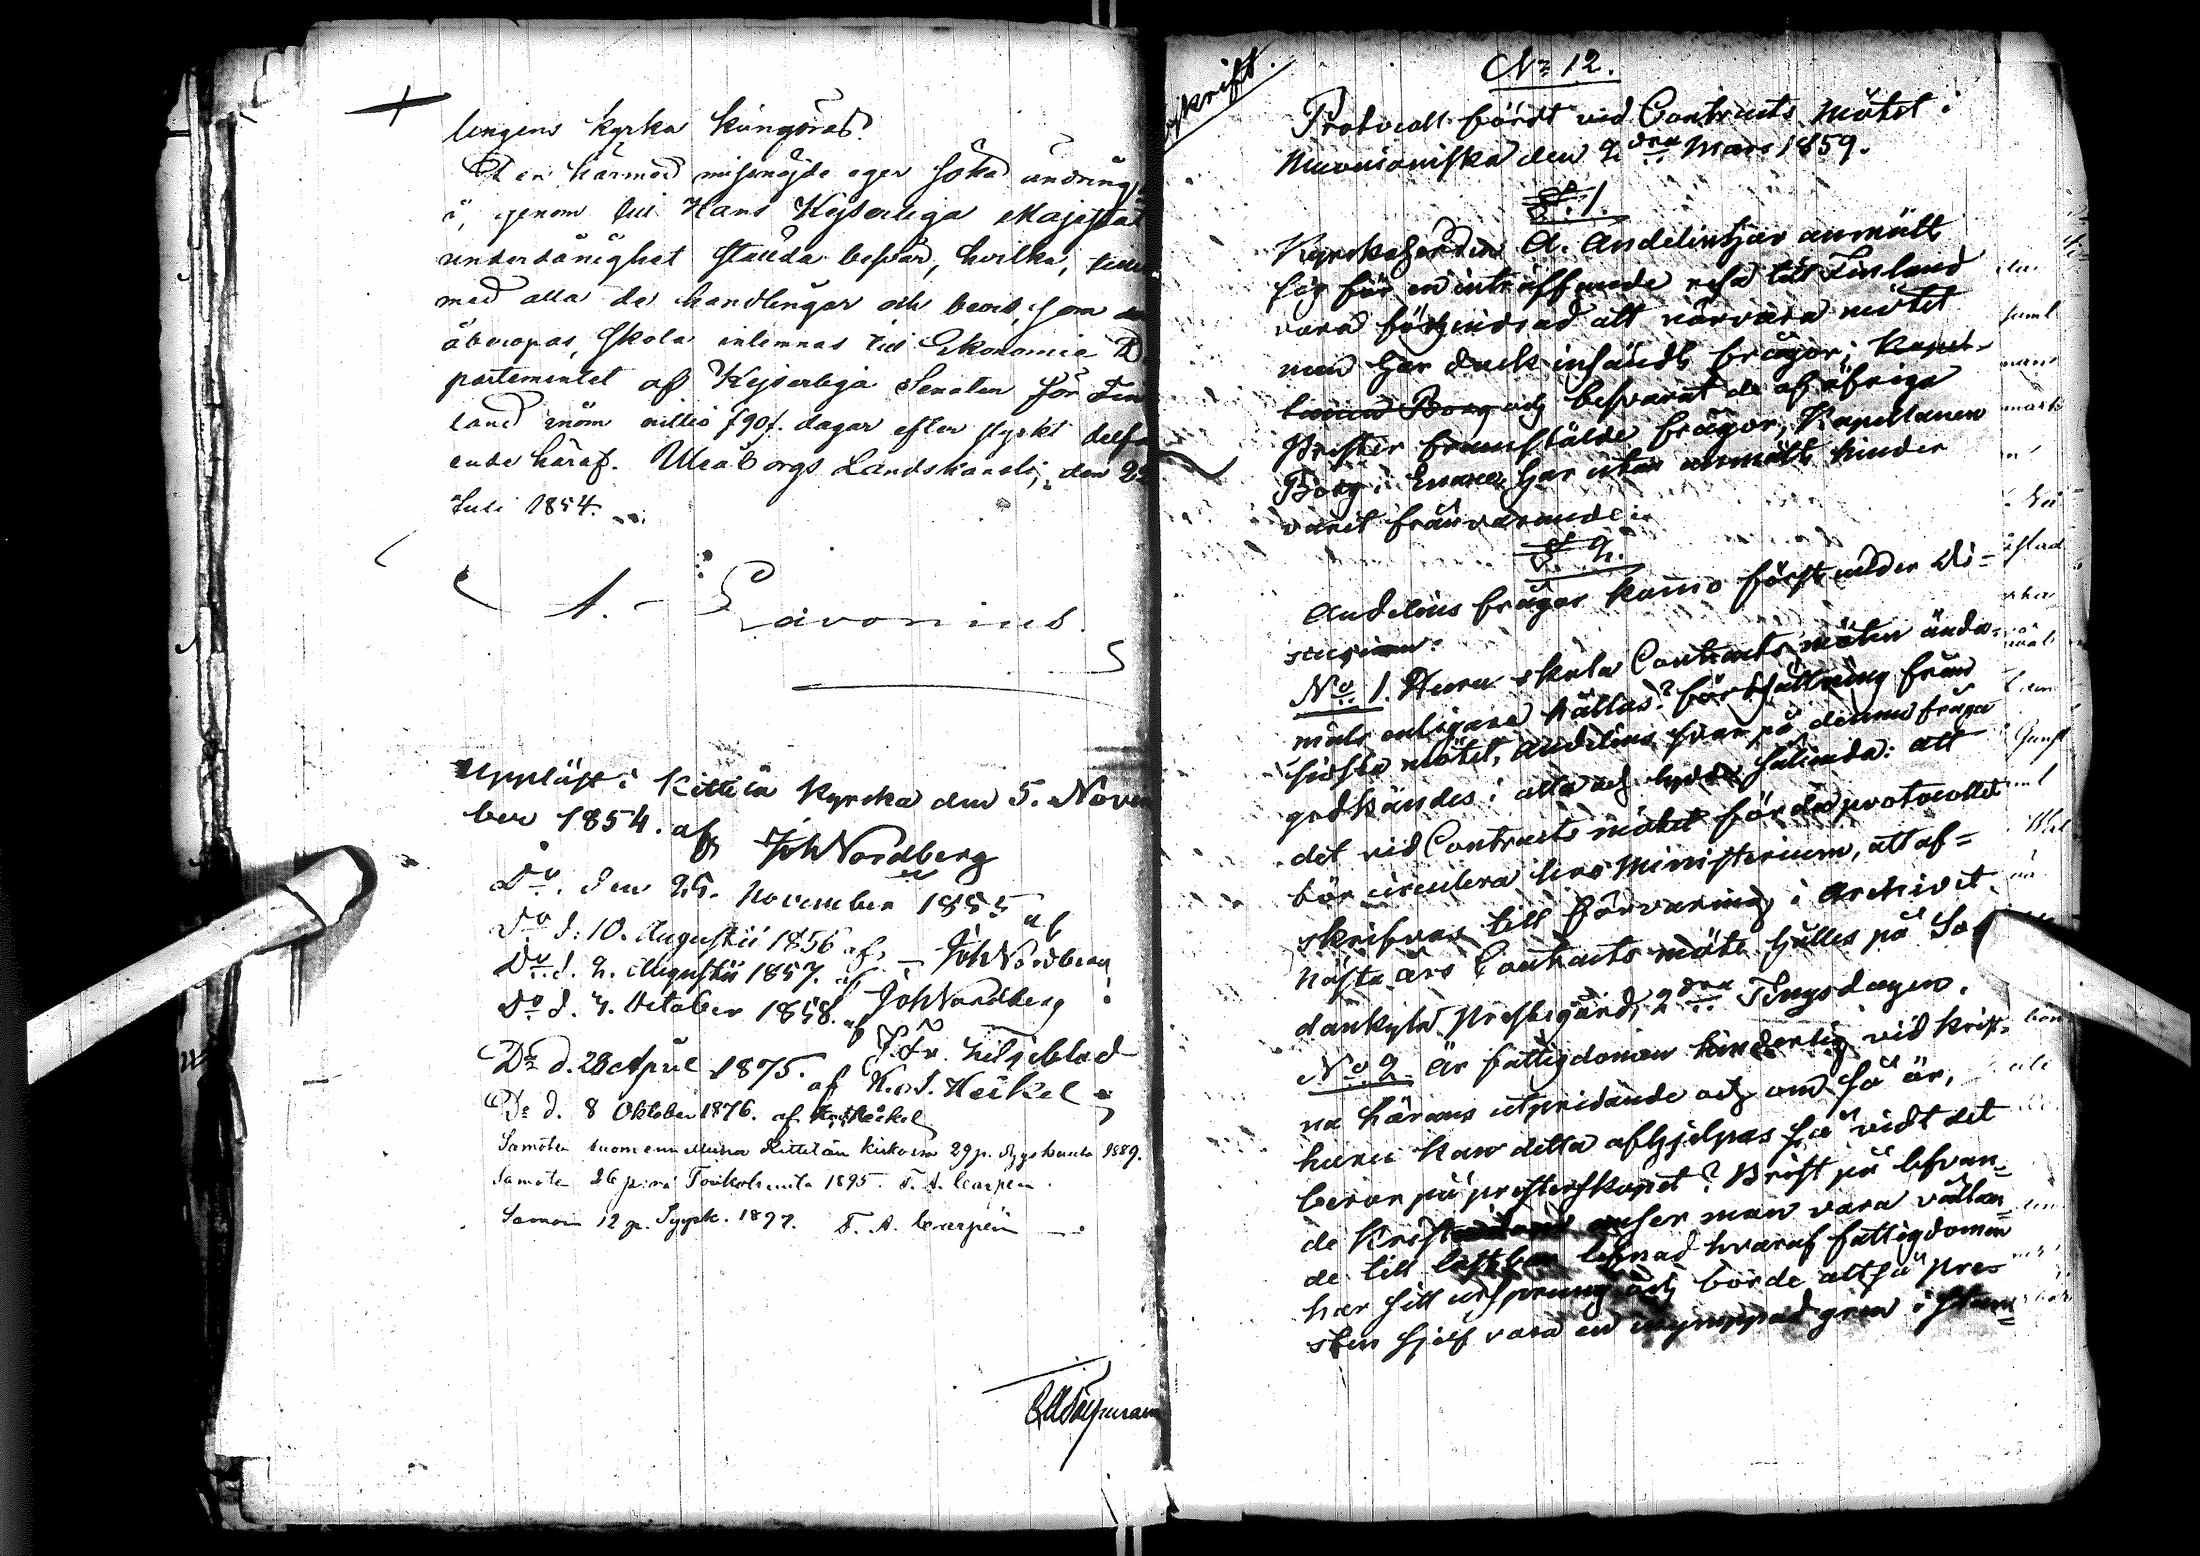 lingens kyrka kungöras.
Den härmed missnöjde eger söka ändring,
i, genom till Hans Kejserliga Majestät
underdånighet stälda besvär, hvilka,
med alla de handlingar och bevis, som
åberopas, skola inlemnas till Ekonomie De
partementet af Kejserliga Senaten för Fin
land inom nittio /90/ dagar efter styrkt delf
ende häraf. Uleåborgs Landskansli, den 2
Juli 1854.
A. Lavonius.
Uppläst i Kittilä Kyrcka den 5. Novem
ber 1854. af Joh Nordberg
Do. den 25. November 1855 af
Do d. 10. Augustii 1856 af. — Joh Nordberg
Do d. 2. Augustii 1857. af Joh Nordberg
Do d. 3. October 1858. af
J. Fr. Liljeblad
Do d. 28 April 1875. af K. J. Heikel
Do d. 8 Oktober 1876. af Heikel
Samoten 29 p. Syyskuuta 1889.
Samoten 26 p:nä Toukokuuta 1895. F. A. Carpén.
Samoin 12 p. Syysk. 1897. F. A. Carpén
No 12.
Protocoll fördt vid Contracts Mötet i
Muonioniska den 2dra Mars 1859.
§. 1.
Kyrkoherden A. Andelin har anmält
sig för en inträffande resa till Finland
vara förhindrad att närvara mötet
men har dock insändt frågor; Kapel-
lanen Borg och besvarat de af öfriga
Prester framstälde frågor, Kapellanen
Borg i Enare, har utan anmält hinder
varit frånvarande.
§. 2.
Andelins frågor kommo först under di-
scussion:
No 1. Huru skola Contracts möten ända-
måls enligare hållas? fortsättning från
sidsta mötet, Andelins svar på denna fråga
godkändes i allo och lydde sålunda: att
det vid Contracts mötet förda protocollet
bör circulera hos Ministerium, att af-
skrifvas till förvaring i Archivet.
Nästa års Contracts möte hålles på So
dankylä Prestegård, 2dra Tingsdagen.
No 2. Är fattigdomen hinderlig vid krist-
na lärans utspridande och om så är,
huru kan detta afhjelpas så vidt det
beror på presterskapet? Brist på lefvan-
de Kristendom anser man vara vållan-
de till lastbar lefnad hvaraf fattigdomen
har sitt ursprung och borde altså pre-
sten sjelf vara en inympad gren i stam-